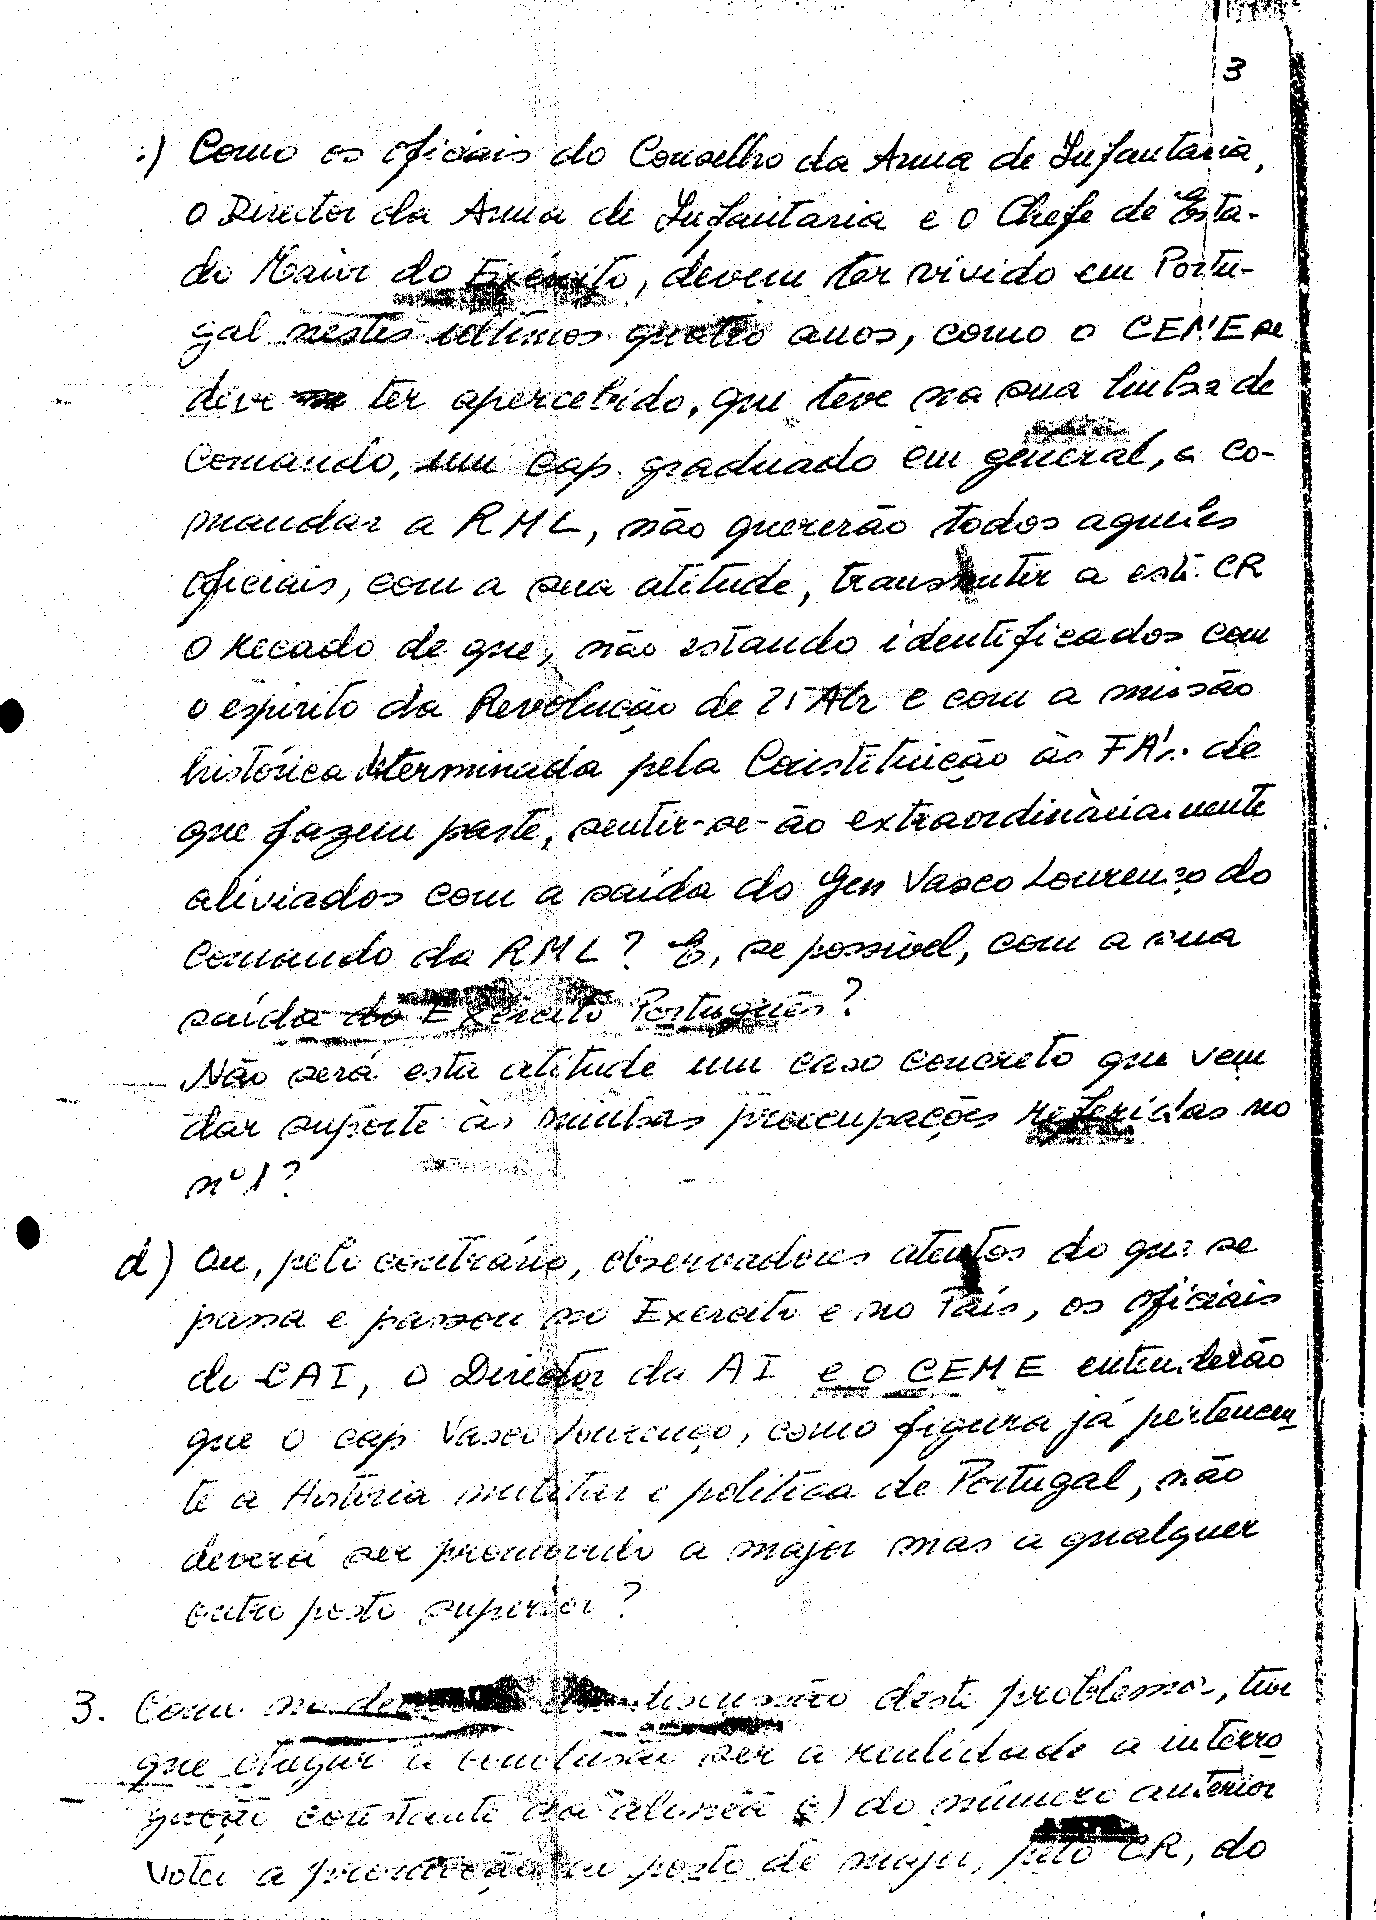 3
c) Como os oficiais do Conselho da Arma de Infantaria,
o Director da Arma de Infantaria e o Chefe de Esta-
do Maior do Exército, devem ter vivido em Portu-
gal nestes últimos quatro anos, como o CEME se
deve ter apercebido, que teve na sua linha de
Comando, um cap. graduado em general, a co-
mandar a RML, não quererão todos aqueles
oficiais, com a sua atitude, transmitir a este CR
o recado de que, não estando identificados com
o espírito da Revolução de 25 Abr e com a missão
histórica determinada pela Constituição às FA's de
que fazem parte, sentir-se-ão extraordinàriamente
aliviados com a saída do Gen Vasco Lourenço do
Comando da RML? E, se possivel, com a sua
saída do Exército Português?
Não será esta atitude um caso concreto que vem
dar suporte às minhas preocupações referidas no
nº 1?
d) Ou, pelo contrário, observadores atentos do que se
passa e passou no Exercito e no País, os oficiais
do CAI, o Director da AI e o CEME entenderão
que o cap Vasco Lourenço, como figura já pertencen
te a História militar e politica de Portugal, não
deverá ser promovido a major mas a qualquer
outro posto superior?
3. Como no discussão deste problema, tive
que chegar à conclusão ser a realidade a interro
gação constante da alinea c) do número anterior
Votei a promoção ao posto de major, pelo CR, do